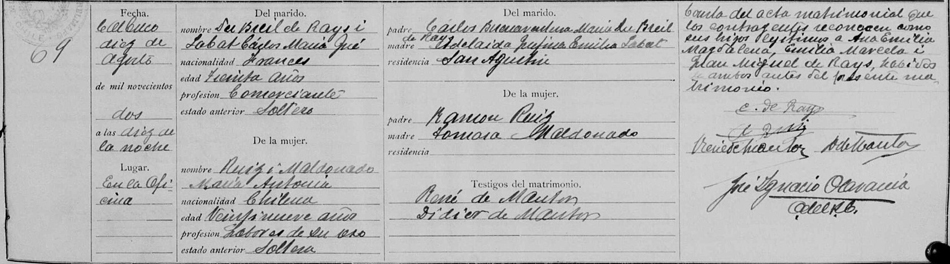 69
Fecha.
El dia
diez de
Agosto
de mil novecientos
dos
a las diez de
la noche
Lugar.
En la Ofi
cina
Del marido.
nombre Du Breil de Rays i
Labat Carlos Maria José
nacionalidad Frances
edad Treinta años
profesion Comerciante
estado anterior Soltero
De la mujer.
nombre Ruiz i Maldonado
Maria Antonia
nacionalidad Chilena
edad Veintinueve años
profesion Labores de su sexo
estado anterior Soltera
Del marido.
padre Carlos Buenaventura Maria du Breil
de Rays
madre Adelaida Emilia Labat
residencia San Agustin
De la mujer.
padre Ramon Ruiz
madre Tomasa Maldonado
residencia
Testigos del matrimonio.
René de Mantor
Didier de Mantor
Consta del acta matrimonial que
los contrayentes reconocen como
sus hijos lejitimos a Ana Emilia
Magdalena, Emilia Marcela i
Juan Miguel de Rays, habidos
ambos antes del presente ma-
trimonio.
C. de Rays
A Ruiz
René de Mantor D de Mantor
José Ignacio Olavarria